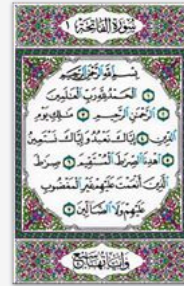 سورة الفاتحة ١
بسم الله الرحمن الرحيم
الحمد لله رب العلمين
الرحمن الرحيم ملك يوم
الدين إياك نعبد وإياك نستعين
اهدنا الصرط المستقيم صرط
الذين أنعمت عليهم غير المغضوب
عليهم ولا الضالين
وآياتها سبع